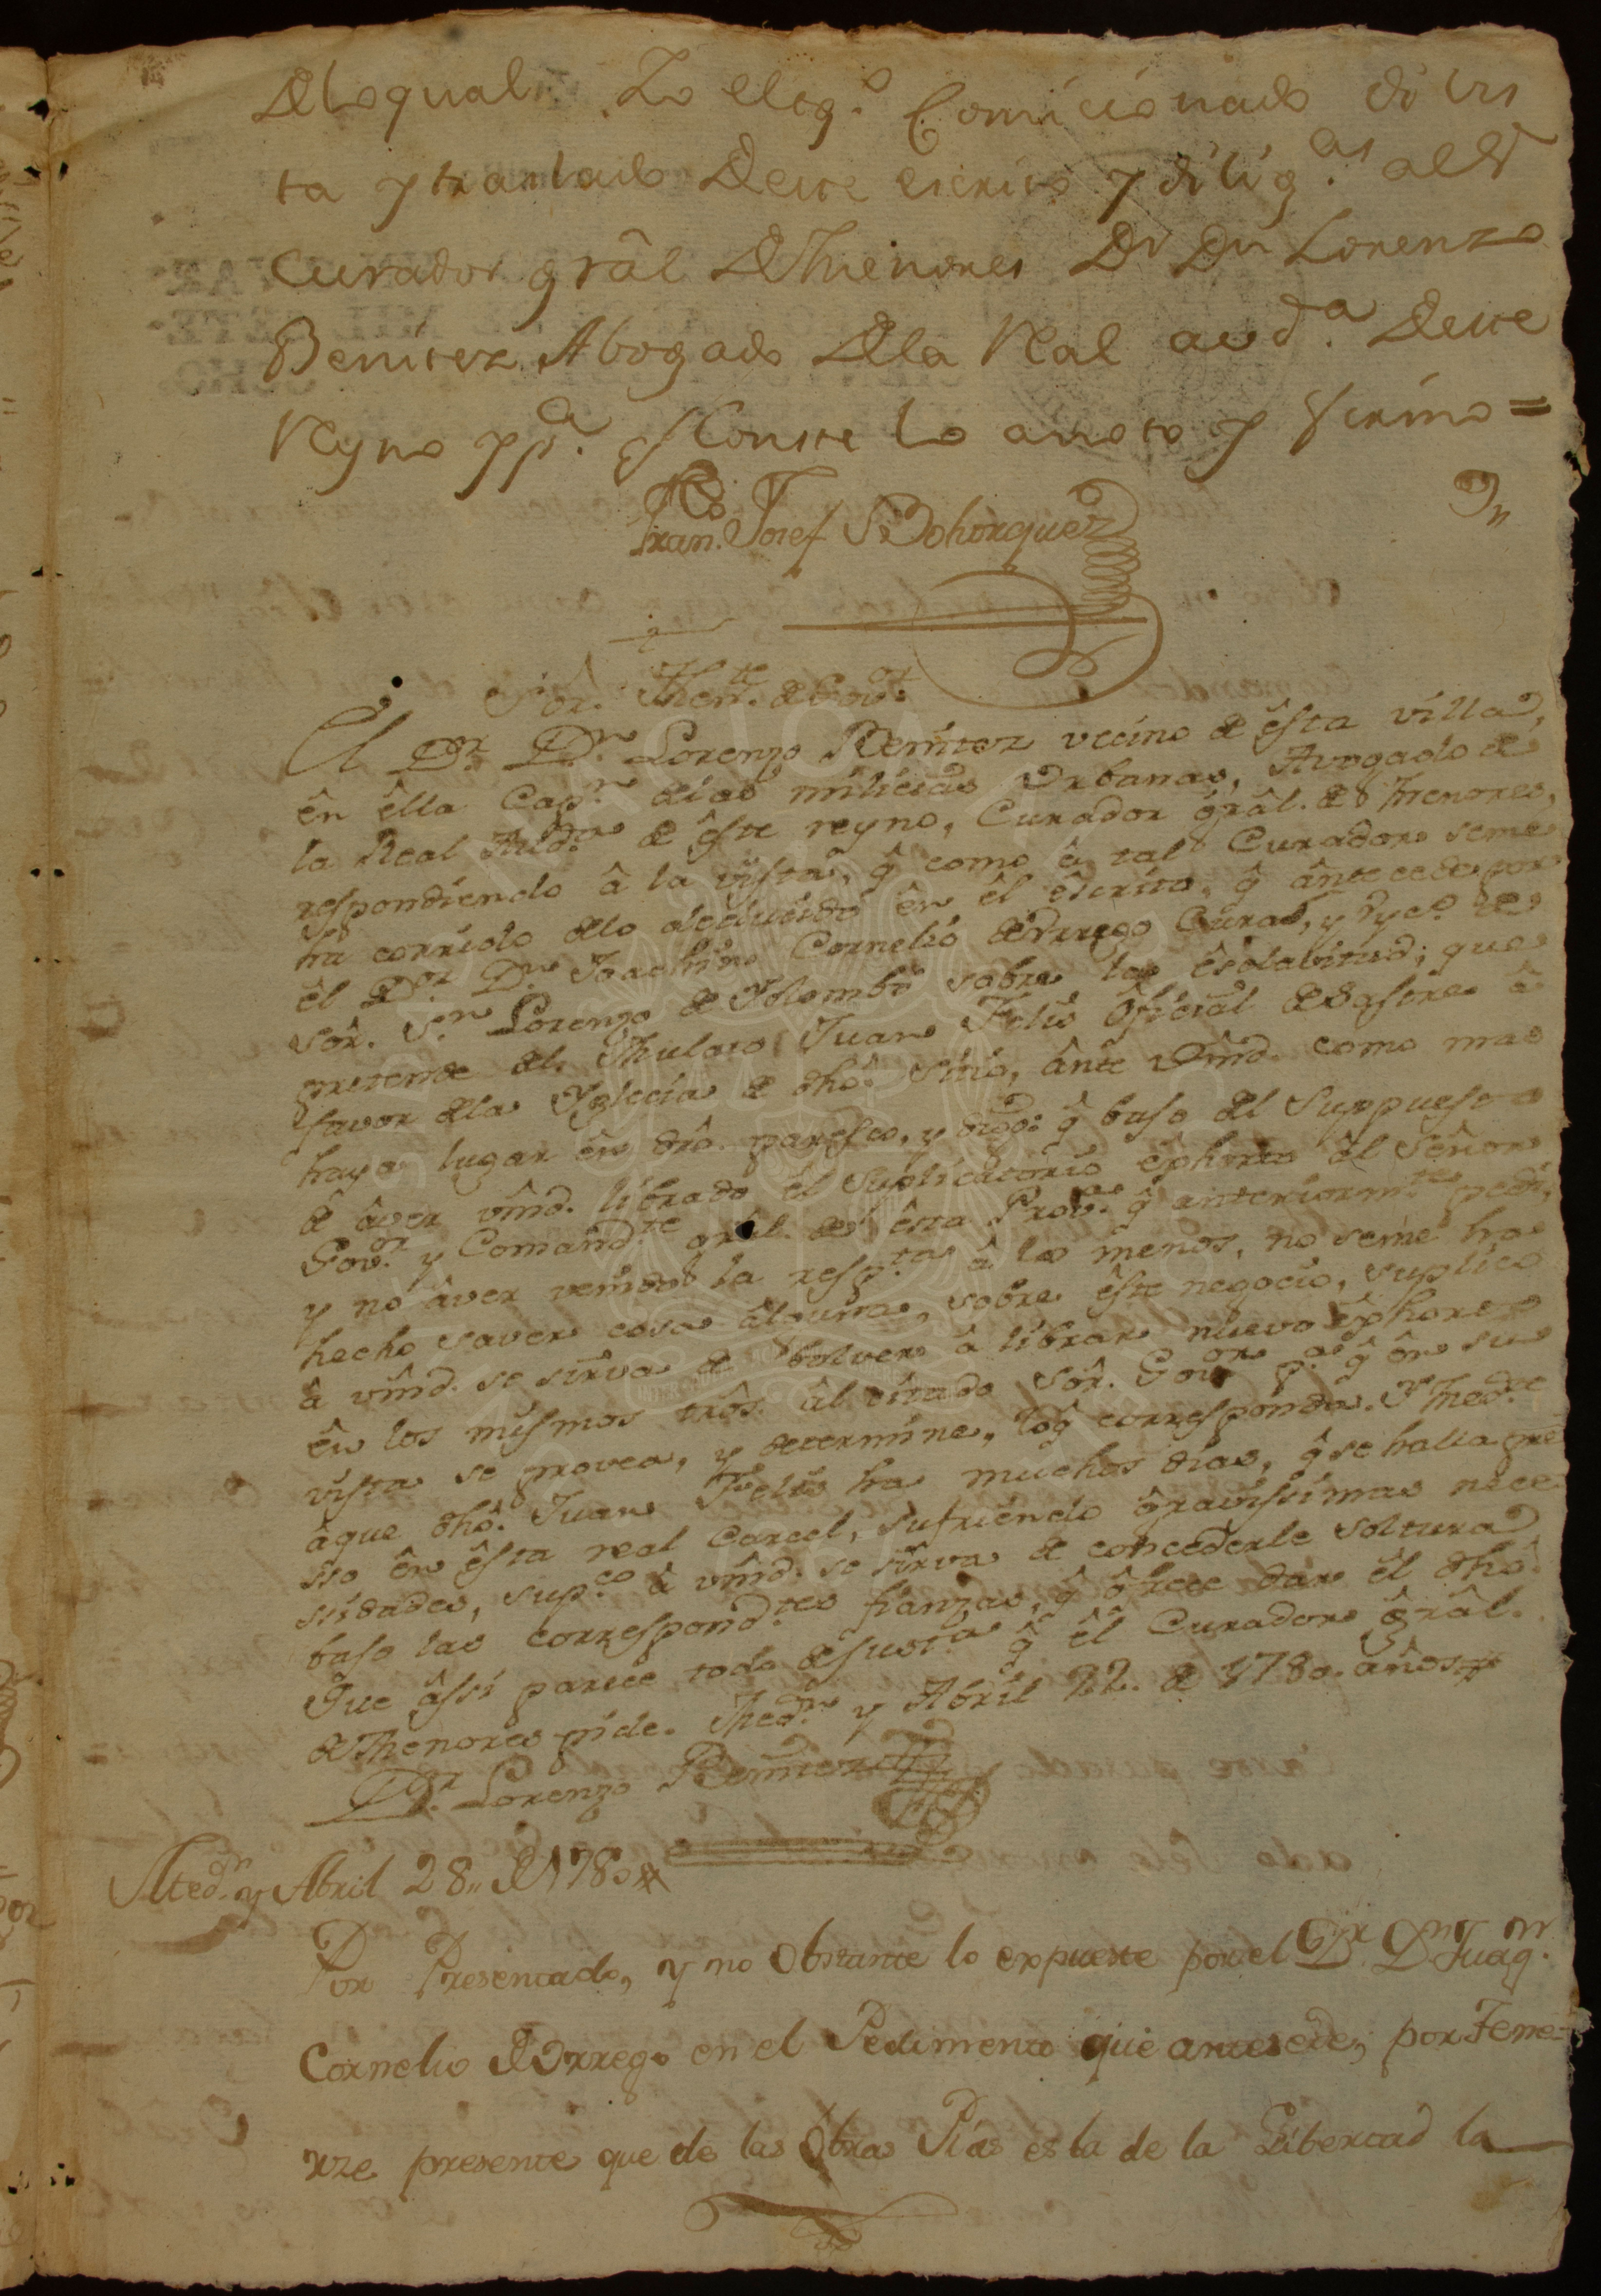 Delo qual. Yo el esq.o Comicionado di vis
ta y traslado Deste escrito y dilig.as al Dr
Curador grâl De Menores Dr Dn Lorenzo
Benites Abogado Dela Real aud.a Deste
Reyno y p.a q Conste lo anoto y firmo =
Fran.co Josef Bohorquez
Sor. Then.te de Gov.or
El Dor. Dn. Lorenzo Benitez vecino de êsta villa,
ên êlla Cap.n delas milicias Vrbanas, Avogado de
la Real Aud.a de êste reyno, Curador grâl. de Menores,
respondiendo â la vista, q̂ como â tal Curador seme
ha corrido delo deducido ên êl êscrito, q̂ ântecede por
êl Dor. Dn. Joachin Cornelio de Orrego Cura, y Vic.o de
sôr. Sn. Lorenzo de Yolombô sobre la êsclavitud; que
pretende del Mulato Juan Felis ôficial de sastre â
favor dela Yglecia de dhô. sitio, ânte Vmd. como mas
haya lugar ên drô. paresco, y digo: q̂ bajo del suppuesto
de âver vmd. librado el suplicatorio êphorto âl señor
Gov.or y Comand.te grâl. de êsta Prov.a q̂ anteriorm.te pedî,
y no âver venido la resp.ta â lo menos, no seme ha
hecho saver cosa âlguna, sobre êste negocio, suplico
â vmd. se sirva de bolver â librar nuevo êphorto
ên los mismos trôs. âl citado sôr. Gov.or p.a q̂ ên su
vista se provea, y determine, loq̂ corresponda. Y med.te
âque dhô. Juan Felis ha muchos dias, q̂ se halla pre
sso ên êsta real Carcel, sufriendo gravissimas nece
sidades, sup.co â vmd. se sirva de concederle soltura
bajo las correspond.tes fianzas, q̂ ôfrece dar êl dhô.
Que âssi parece todo de just.a q̂ êl Curador grâl.
de Menores pide. Med.n y Abril 22. de 1780. años
Dor. Lorenzo Benitez
Med.n y Abril 28,, de 1780
Por Presentado, y no Obstante lo expuesto por el Dr. Dn Juaq.n
Cornelio de Orrego en el Pedimento que antesede, por Tene-
rze presente que de las Obras Pias es la de la Libertad la